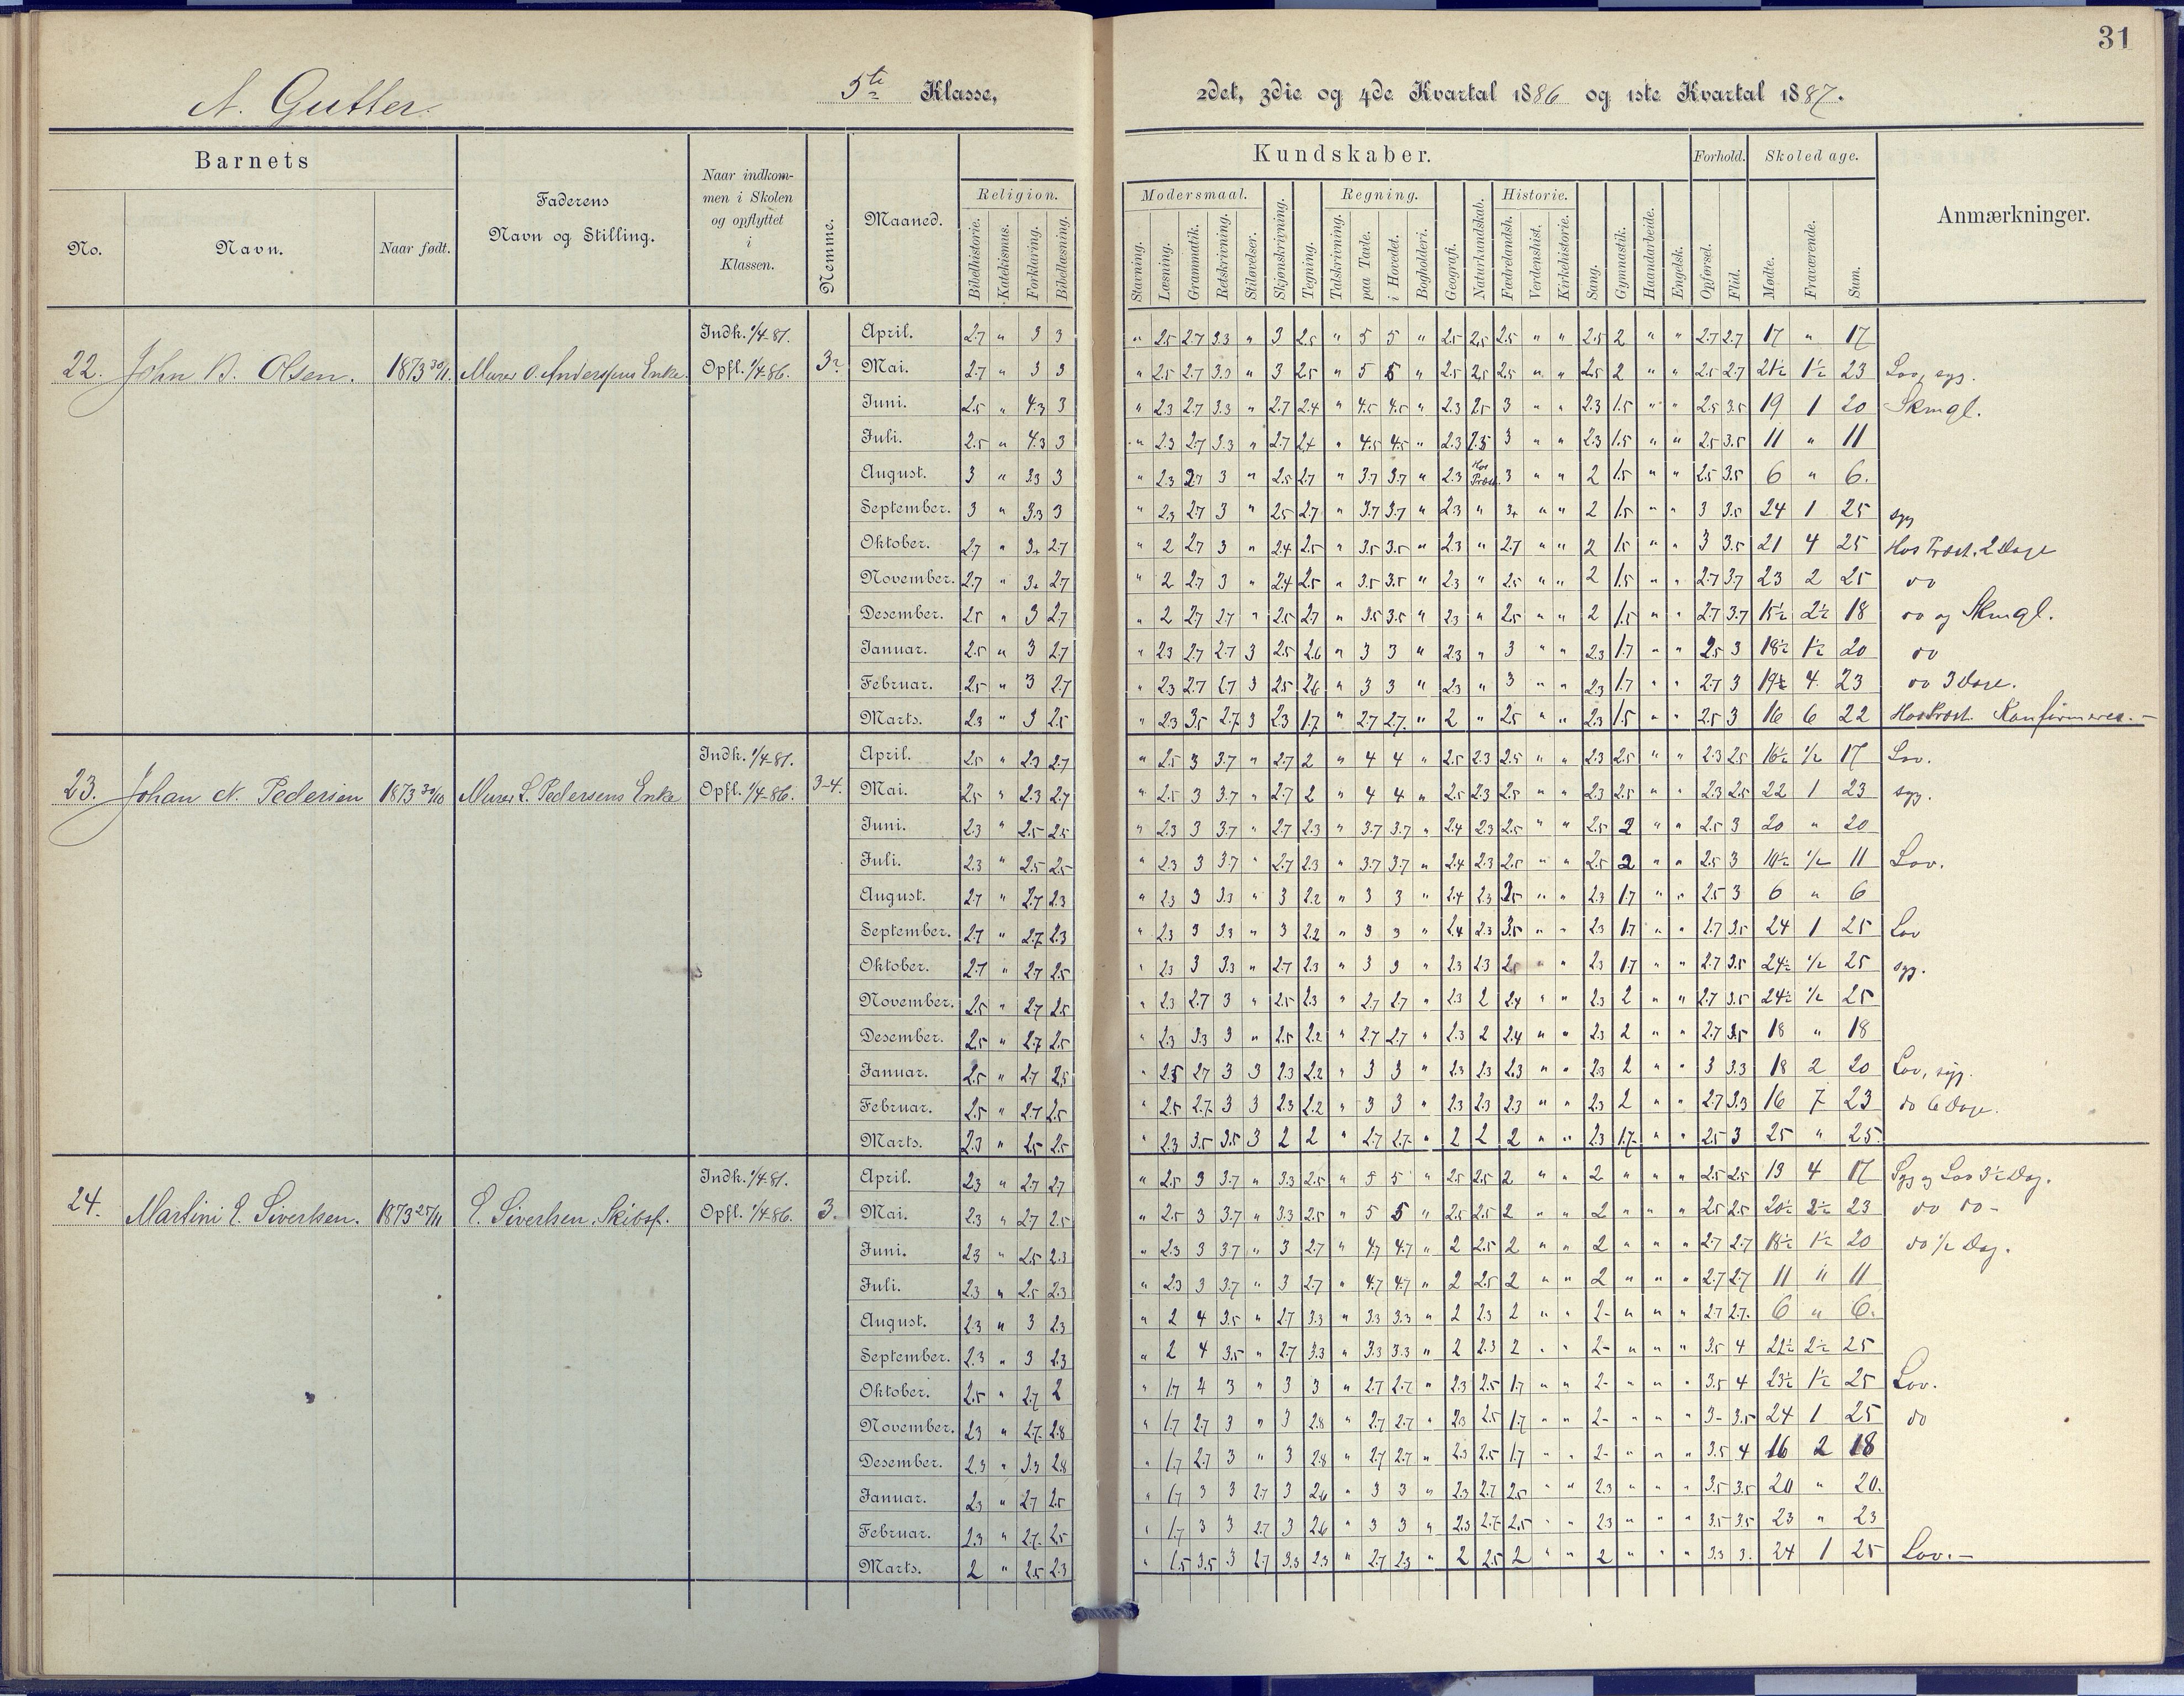 31
A. Gutter. 5te Klasse, 2det, 3die og 4de Kvartal 1886 og 1ste Kvartal 1887.
Barnets
Faderens Navn og Stilling.
Naar indkommen i Skolen og opflyttet i Klassen.
Nemme.
Maaned.
Kundskaber.
Forhold.
Skoledage.
Anmærkninger.
No. Navn. Naar født.
Religion. Modersmaal. Skjønskrivning. Tegning. Regning. Geografi. Naturkundskab. Historie. Sang. Gymnastik. Haandarbeide. Engelsk.
Bibelhistorie. Katekismus. Forklaring. Bibellæsning. Stavning. Læsning. Grammatik. Retskrivning. Stiløvelser. Talskrivning. paa Tavle. i Hovedet. Bogholderi. Fædrelandsh. Verdenshist. Kirkehistorie. Opførsel. Flid. Mødte. Fraværende. Sum.
22. John B. Olsen. 1873 30/11. Murer O. Anderssens Enke. Indk. 1/4-81. Opfl. 1/4-86. 3
April. 2.7 " 3 3 " 2.5 2.7 3.3 " 3 2.5 " 5 5 " 2.5 2.5 2.5 " " 2.5 2 " " 2.7 2.7 17 " 17
Mai. 2.7 " 3 3 " 2.5 2.7 3.3 " 3 2.5 " 5 5 " 2.5 2.5 2.5 " " 2.5 2 " " 2.5 2.7 21½ 1½ 23 Lov, syg.
Juni. 2.5 " 4.3 3 " 2.3 2.7 3.3 " 2.7 2.4 " 4.5 4.5 " 2.3 2.5 3 " " 2.3 1.5 " " 2.5 3.5 19 1 20 Skmgl.
Juli. 2.5 " 4.3 3 " 2.3 2.7 3.3 " 2.7 2.4 " 4.5 4.5 " 2.3 2.5 3 " " 2.3 1.5 " " 2.5 3.5 11 " 11
August. 3 " 3.3 3 " 2.3 2.7 3 " 2.5 2.7 " 3.7 3.7 " 2.3 Hos Præst. 3 " " 2 1.5 " " 2.5 3.5 6 " 6.
September. 3 " 3.3 3 " 2.3 2.7 3 " 2.5 2.7 " 3.7 3.7 " 2.3 " 3+ " " 2 1.5 " " 3 3.5 24 1 25 syg
Oktober. 2.7 " 3+ 2.7 " 2 2.7 3 " 2.4 2.5 " 3.5 3.5 " 2.3 " 2.7 " " 2 1.5 " " 3 3.5 21 4 25 Hos Præst. 2 Dage
November. 2.7 " 3+ 2.7 " 2 2.7 3 " 2.4 2.5 " 3.5 3.5 " 2.3 " 2.5 " " 2 1.5 " " 2.7 3.7 23 2 25 do
Desember. 2.5 " 3 2.7 " 2 2.7 2.7 " 2.5 2.7 " 3.5 3.5 " 2.3 " 2.5 " " 2 1.5 " " 2.7 3.7 15½ 2½ 18 do og Skmgl.
Januar. 2.5 " 3 2.7 " 2.3 2.7 2.7 3 2.5 2.6 " 3 3 " 2.3 " 3 " " 2.3 1.7 " " 2.5 3 18½ 1½ 20 do
Februar. 2.5 " 3 2.7 " 2.3 2.7 2.7 3 2.5 2.6 " 3 3 " 2.3 " 3 " " 2.3 1.7 " " 2.7 3 19½ 4 23 do 3 Dage.
Marts. 2.3 " 3 2.5 " 2.3 3.5 2.7 3 2.3 1.7 " 2.7 2.7 " 2 " 2.5 " " 2.3 1.5 " " 2.5 3 16 6 22 Hos Præst. Konfirmeres.
23. Johan N. Pedersen 1873 30/10 Murer L. Pedersens Enke Indk. 1/4-81. Opfl. 1/4-86. 3-4.
April. 2.5 " 2.3 2.7 " 2.5 3 3.7 " 2.7 2 " 4 4 " 2.5 2.3 2.5 " " 2.3 2.5 " " 2.3 2.5 16½ ½ 17 Lov.
Mai. 2.5 " 2.3 2.7 " 2.5 3 3.7 " 2.7 2 " 4 4 " 2.5 2.3 2.5 " " 2.3 2.5 " " 2.3 2.5 22 1 23 syg.
Juni. 2.3 " 2.5 2.5 " 2.3 3 3.7 " 2.7 2.3 " 3.7 3.7 " 2.4 2.3 2.5 " " 2.5 2 " " 2.5 3 20 " 20
Juli. 2.3 " 2.5 2.5 " 2.3 3 3.7 " 2.7 2.3 " 3.7 3.7 " 2.4 2.3 2.5 " " 2.5 2 " " 2.5 3 10½ ½ 11 Lov.
August. 2.7 " 2.7 2.3 " 2.3 3 3.3 " 3 2.2 " 3 3 " 2.4 2.3 3.5 " " 2.3 1.7 " " 2.5 3 6 " 6
September. 2.7 " 2.7 2.3 " 2.3 3 3.3 " 3 2.2 " 3 3 " 2.4 2.3 3.5 " " 2.3 1.7 " " 2.7 3.5 24 1 25 Lov
Oktober. 2.7 " 2.7 2.5 " 2.3 3 3.3 " 2.7 2.3 " 3 3 " 2.3 2.3 2.5 " " 2.3 1.7 " " 2.7 3.5 24½ ½ 25 syg.
November. 2.5 " 2.7 2.5 " 2.3 2.7 3 " 2.5 2.3 " 2.7 2.7 " 2.3 2 2.4 " " 2.3 2 " " 2.7 3.5 24½ ½ 25
Desember. 2.5 " 2.7 2.5 " 2.3 3.3 3 " 2.5 2.2 " 2.7 2.7 " 2.3 2 2.4 " " 2.3 2 " " 2.7 3.5 18 " 18
Januar. 2.5 " 2.7 2.5 " 2.5 2.7 3 3 2.3 2.2 " 3 3 " 2.3 2.3 2.3 " " 2.3 2 " " 3 3.3 18 2 20 Lov, syg.
Februar. 2.5 " 2.7 2.5 " 2.5 2.7 3 3 2.3 2.2 " 3 3 " 2.3 2.3 2.3 " " 2.3 2 " " 2.7 3.3 16 7 23 do 6 Dage.
Marts. 2.3 " 2.5 2.5 " 2.3 3.5 3.5 3 2 2 " 2.7 2.7 " 2 2 2 " " 2.3 1.7 " " 2.5 3 25 " 25.
24. Martini E. Sivertsen. 1873 25/11 E. Sivertsen, Skibsf. Indk. 1/4-81. Opfl. 1/4-86. 3.
April. 2.3 " 2.7 2.7 " 2.5 3 3.7 " 3.3 2.5 " 5 5 " 2.5 2.5 2 " " 2 " " " 2.5 2.5 13 4 17 Syg og Lov 3½ Dag.
Mai. 2.3 " 2.7 2.5 " 2.5 3 3.7 " 3.3 2.5 " 5 5 " 2.5 2.5 2 " " 2 " " " 2.5 2.5 20½ 2½ 23 do do -
Juni. 2.3 " 2.5 2.3 " 2.3 3 3.7 " 3 2.7 " 4.7 4.7 " 2 2.5 2 " " 2 " " " 2.7 2.7 18½ 1½ 20 do ½ Dag.
Juli. 2.3 " 2.5 2.3 " 2.3 3 3.7 " 3 2.7 " 4.7 4.7 " 2 2.5 2 " " 2 " " " 2.7 2.7 11 " 11
August. 2.3 " 3 2.3 " 2 4 3.5 " 2.7 3.3 " 3.3 3.3 " 2 2.3 2 " " 2- " " " 2.7 2.7 6 " 6.
September. 2.3 " 3 2.3 " 2 4 3.5 " 2.7 3.3 " 3.3 3.3 " 2 2.3 2 " " 2- " " " 3.5 4 22½ 2½ 25
Oktober. 2.5 " 2.7 2 " 1.7 4 3 " 3 3 " 2.7 2.7 " 2.3 2.5 1.7 " " 2- " " " 3.5 4 23½ 1½ 25 Lov.
November. 2.3 " 2.7 2.8 " 1.7 2.7 3 " 3 2.8 " 2.7 2.7 " 2.3 2.5 1.7 " " 2- " " " 3- 3.5 24 1 25 do
Desember. 2.3 " 3.3 2.8 " 1.7 2.7 3 " 3 2.8 " 2.7 2.7 " 2.3 2.5 1.7 " " 2- " " " 3.5 4 16 2 18
Januar. 2.3 " 2.7 2.5 " 1.7 3 3 2.7 3 2.6 " 3 3 " 2.3 2.7 2.5 " " 2.3 " " " 3.5 3.5 20 " 20.
Februar. 2.3 " 2.7 2.5 " 1.7 3 3 2.7 3 2.6 " 3 3 " 2.3 2.7 2.5 " " 2.3 " " " 3.5 3.5 23 " 23
Marts. 2 " 2.5 2.3 " 1.5 3.5 3 2.7 3.3 2.3 " 2.7 2.3 " 2 2.5 2 " " 2 " " " 3.3 3. 24 1 25 Lov. -